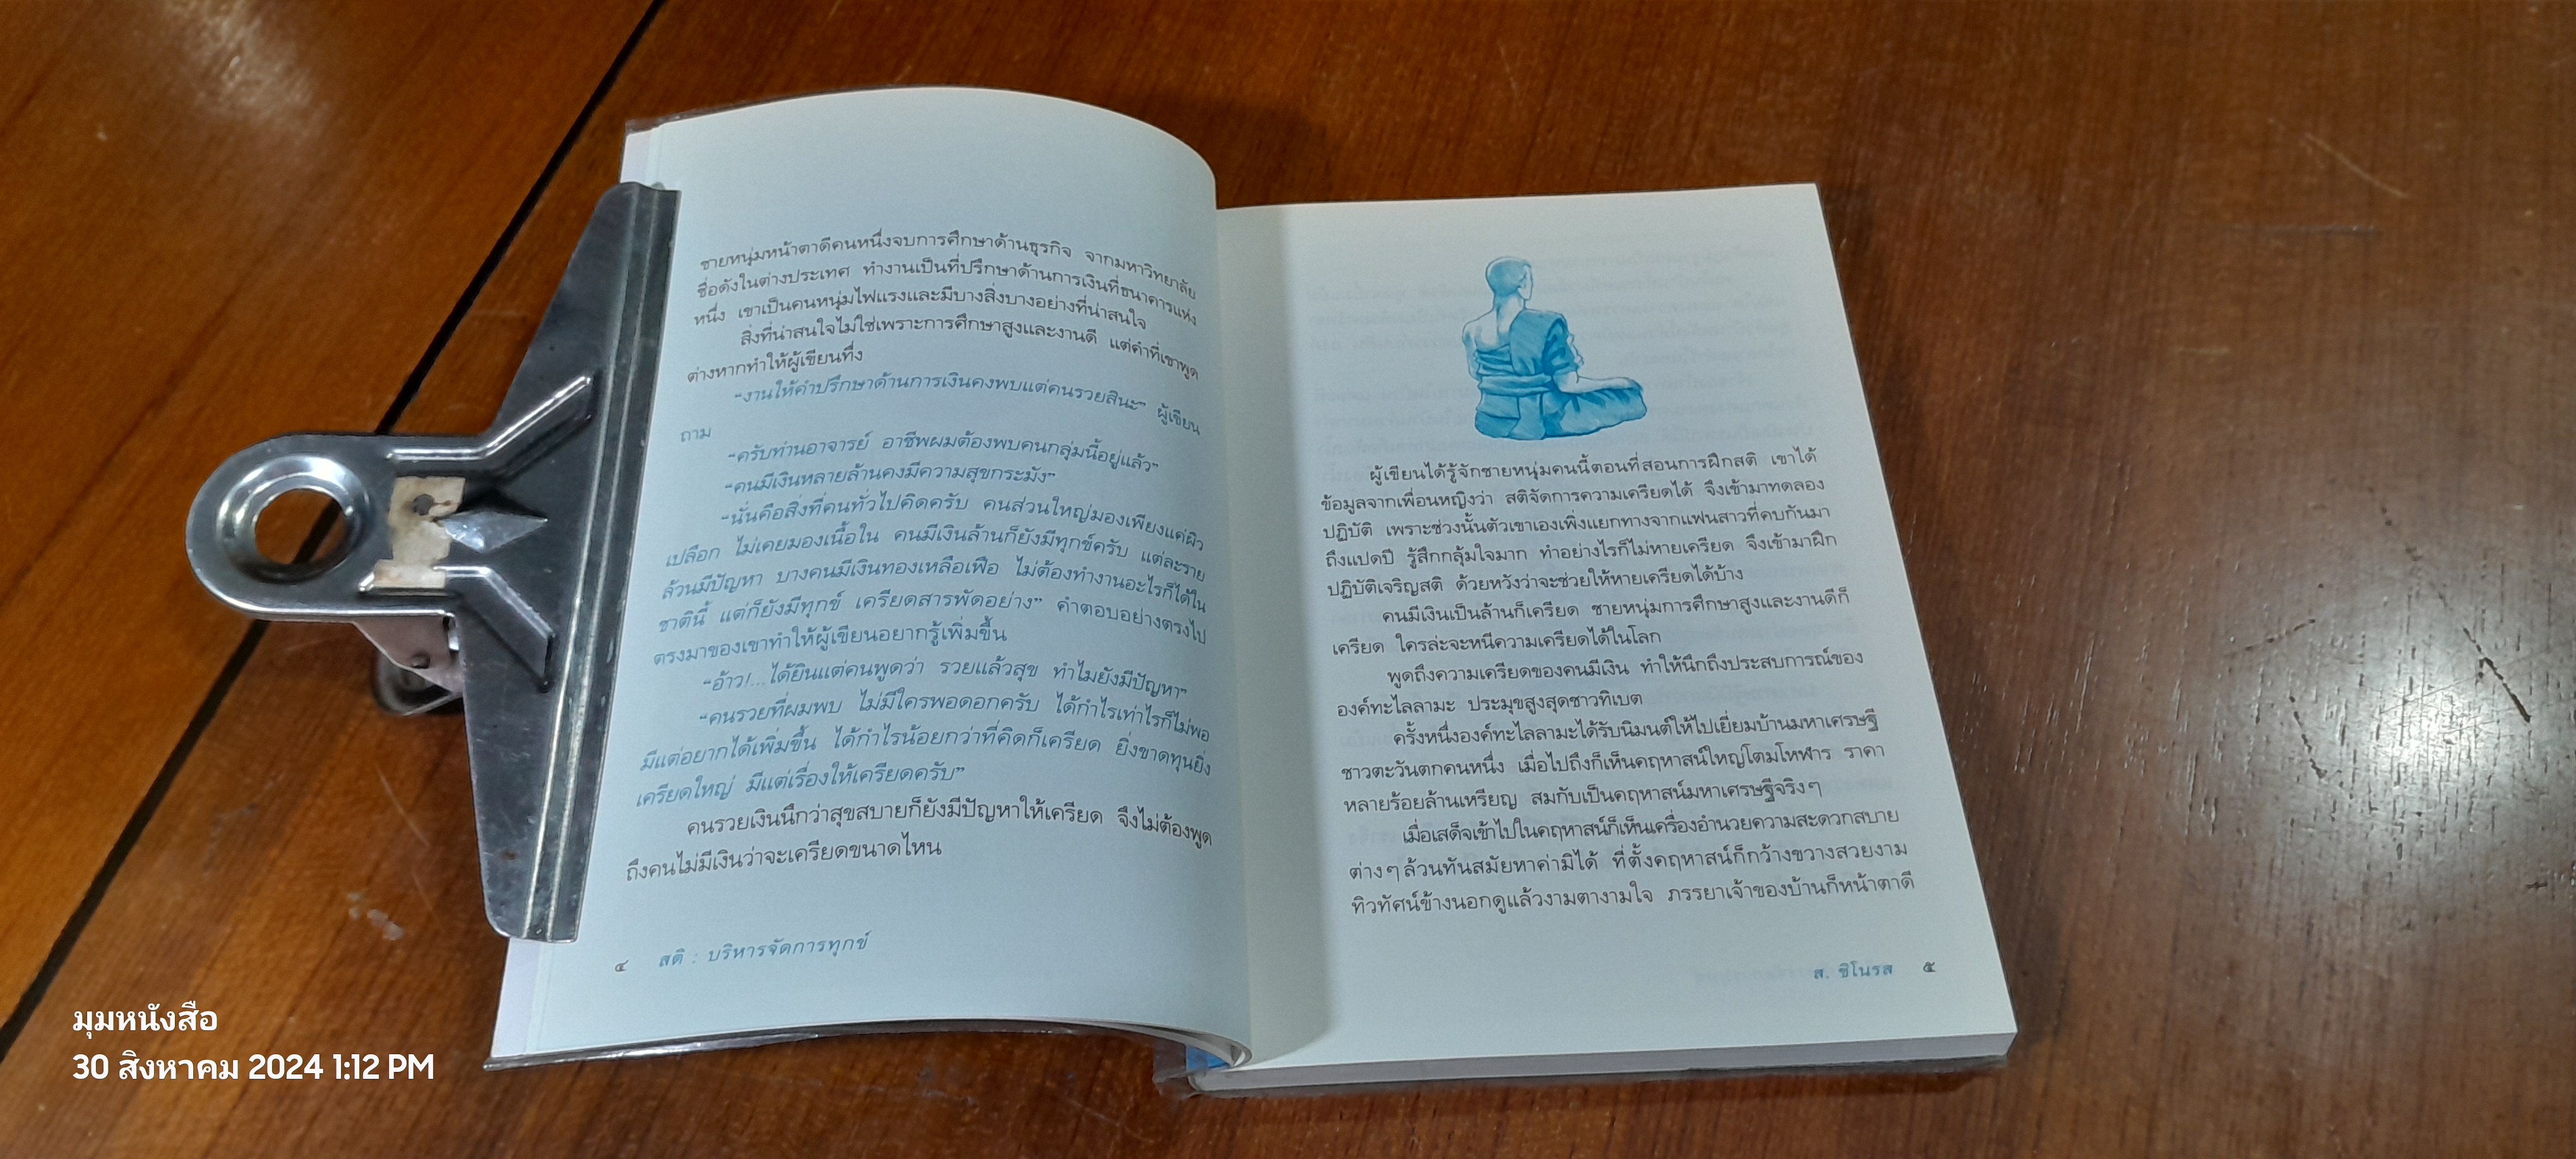 ชายหนุ่มหน้าตาดีคนหนึ่งจบการศึกษาด้านธุรกิจ จากมหาวิทยาลัย
ชื่อดังในต่างประเทศ ทำงานเป็นที่ปรึกษาด้านการเงินที่ธนาคารแห่ง
หนึ่ง เขาเป็นคนหนุ่มไฟแรงและมีบางสิ่งบางอย่างที่น่าสนใจ
สิ่งที่น่าสนใจไม่ใช่เพราะการศึกษาสูงและงานดี แต่คำที่เขาพูด
ต่างหากทำให้ผู้เขียนทึ่ง
“งานให้คำปรึกษาด้านการเงินคงพบแต่คนรวยสินะ” ผู้เขียน
ถาม
“ครับท่านอาจารย์ อาชีพผมต้องพบคนกลุ่มนี้อยู่แล้ว”
“คนมีเงินหลายล้านคงมีความสุขกระมัง”
“นั่นคือสิ่งที่คนทั่วไปคิดครับ คนส่วนใหญ่มองเพียงแค่ผิว
เปลือก ไม่เคยมองเนื้อใน คนมีเงินล้านก็ยังมีทุกข์ครับ แต่ละราย
ล้วนมีปัญหา บางคนมีเงินทองเหลือเฟือ ไม่ต้องทำงานอะไรก็ได้ใน
ชาตินี้ แต่ก็ยังมีทุกข์ เครียดสารพัดอย่าง” คำตอบอย่างตรงไป
ตรงมาของเขาทำให้ผู้เขียนอยากรู้เพิ่มขึ้น
“อ้าว!...ได้ยินแต่คนพูดว่า รวยแล้วสุข ทำไมยังมีปัญหา”
“คนรวยที่ผมพบ ไม่มีใครพอดอกครับ ได้กำไรเท่าไรก็ไม่พอ
มีแต่อยากได้เพิ่มขึ้น ได้กำไรน้อยกว่าที่คิดก็เครียด ยิ่งขาดทุนยิ่ง
เครียดใหญ่ มีแต่เรื่องให้เครียดครับ”
คนรวยเงินนึกว่าสุขสบายก็ยังมีปัญหาให้เครียด จึงไม่ต้องพูด
ถึงคนไม่มีเงินว่าจะเครียดขนาดไหน
๔ สติ : บริหารจัดการทุกข์
ผู้เขียนได้รู้จักชายหนุ่มคนนี้ตอนที่สอนการฝึกสติ เขาได้
ข้อมูลจากเพื่อนหญิงว่า สติจัดการความเครียดได้ จึงเข้ามาทดลอง
ปฏิบัติ เพราะช่วงนั้นตัวเขาเองเพิ่งแยกทางจากแฟนสาวที่คบกันมา
ถึงแปดปี รู้สึกกลุ้มใจมาก ทำอย่างไรก็ไม่หายเครียด จึงเข้ามาฝึก
ปฏิบัติเจริญสติ ด้วยหวังว่าจะช่วยให้หายเครียดได้บ้าง
คนมีเงินเป็นล้านก็เครียด ชายหนุ่มการศึกษาสูงและงานดีก็
เครียด ใครล่ะจะหนีความเครียดได้ในโลก
พูดถึงความเครียดของคนมีเงิน ทำให้นึกถึงประสบการณ์ของ
องค์ทะไลลามะ ประมุขสูงสุดชาวทิเบต
ครั้งหนึ่งองค์ทะไลลามะได้รับนิมนต์ให้ไปเยี่ยมบ้านมหาเศรษฐี
ชาวตะวันตกคนหนึ่ง เมื่อไปถึงก็เห็นคฤหาสน์ใหญ่โตมโหฬาร ราคา
หลายร้อยล้านเหรียญ สมกับเป็นคฤหาสน์มหาเศรษฐีจริงๆ
เมื่อเสด็จเข้าไปในคฤหาสน์ก็เห็นเครื่องอำนวยความสะดวกสบาย
ต่างๆ ล้วนทันสมัยหาค่ามิได้ ที่ตั้งคฤหาสน์ก็กว้างขวางสวยงาม
ทิวทัศน์ข้างนอกดูแล้วงามตางามใจ ภรรยาเจ้าของบ้านก็หน้าตาดี
ส. ชิโนรส ๕
มุมหนังสือ
30 สิงหาคม 2024 1:12 PM